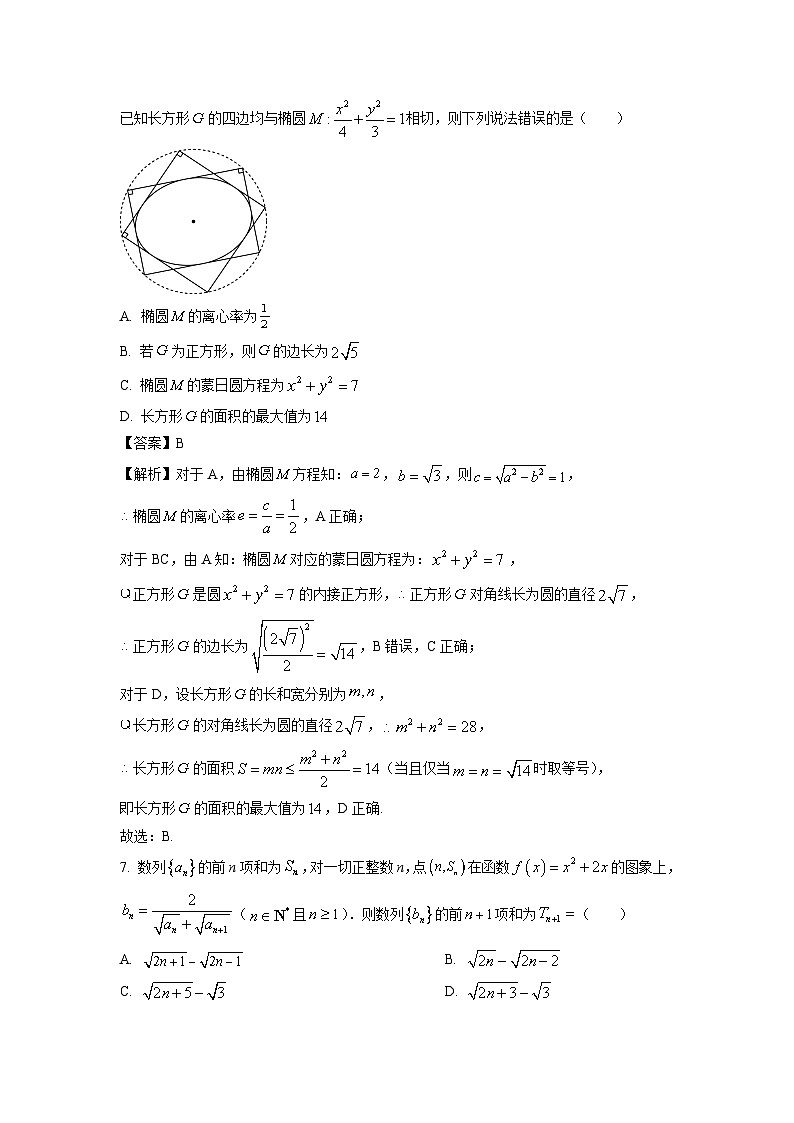 已知长方形 G 的四边均与椭圆 M : x²/4 + y²/3 = 1相切，则下列说法错误的是（　　）
A. 椭圆 M 的离心率为 1/2
B. 若 G 为正方形，则 G 的边长为 2√5
C. 椭圆 M 的蒙日圆方程为 x² + y² = 7
D. 长方形 G 的面积的最大值为 14
【答案】B
【解析】对于 A，由椭圆 M 方程知：a = 2，b = √3，则 c = √(a² − b²) = 1，
∴ 椭圆 M 的离心率 e = c/a = 1/2，A 正确；
对于 BC，由 A 知：椭圆 M 对应的蒙日圆方程为：x² + y² = 7，
Q 正方形 G 是圆 x² + y² = 7 的内接正方形，∴ 正方形 G 对角线长为圆的直径 2√7，
∴ 正方形 G 的边长为 √((2√7)²/2) = √14，B 错误，C 正确；
对于 D，设长方形 G 的长和宽分别为 m, n，
Q 长方形 G 的对角线长为圆的直径 2√7，∴ m² + n² = 28，
∴ 长方形 G 的面积 S = mn ≤ (m² + n²)/2 = 14（当且仅当 m = n = √14 时取等号），
即长方形 G 的面积的最大值为 14，D 正确.
故选：B.
7. 数列{aₙ}的前 n 项和为 Sₙ,对一切正整数 n,点(n,Sₙ)在函数 f(x) = x² + 2x 的图象上，
bₙ = 2/(√aₙ + √aₙ₊₁)（n ∈ N* 且 n ≥ 1）. 则数列{bₙ}的前 n + 1 项和为 Tₙ₊₁ =（　　）
A. √(2n+1) − √(2n−1)　　B. √(2n) − √(2n−2)
C. √(2n+5) − √3　　D. √(2n+3) − √3